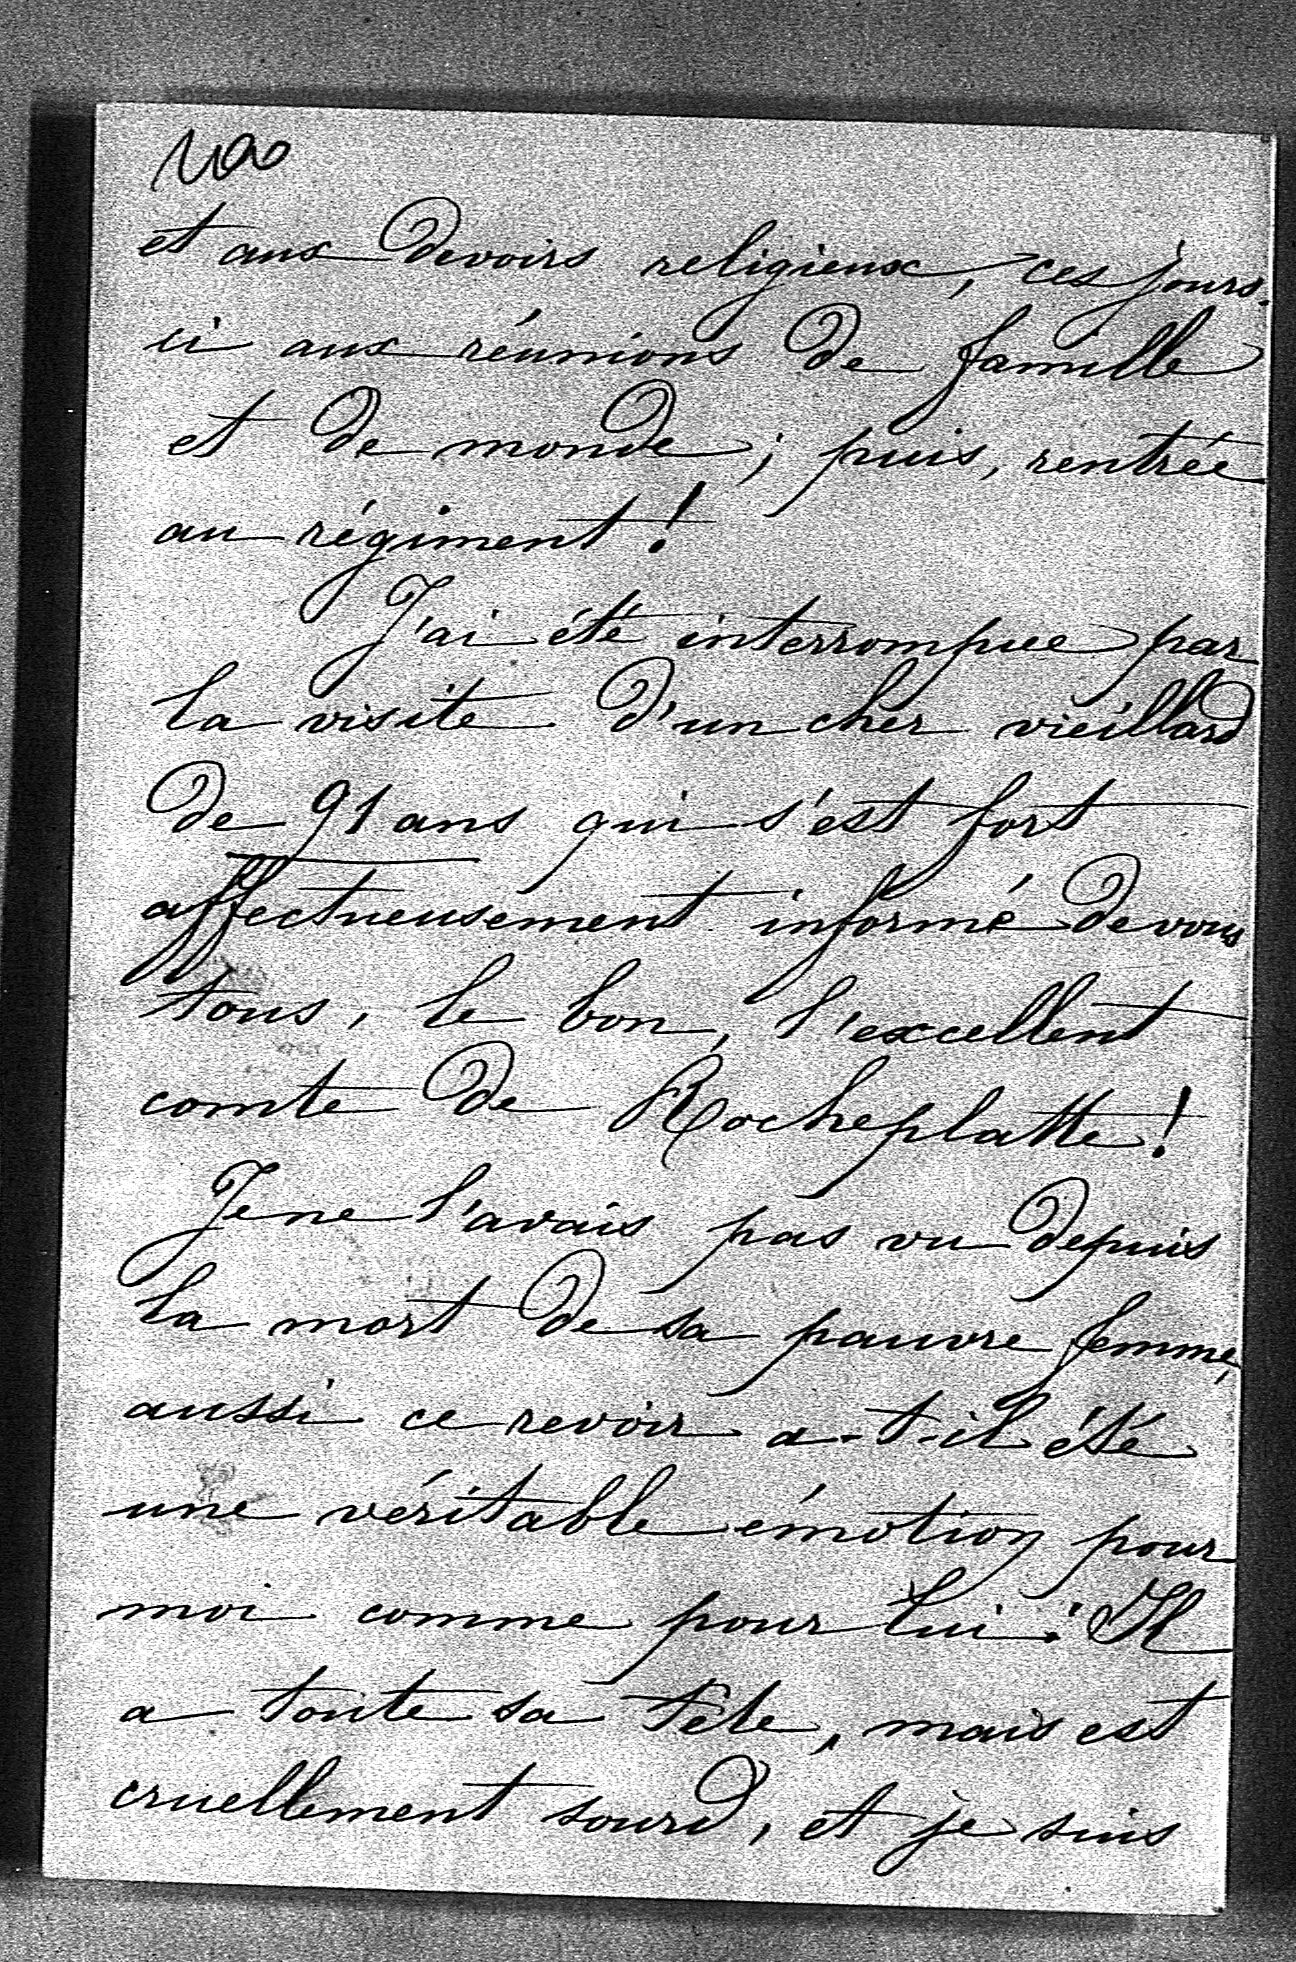 et aux devoirs religieux, ces jours-
ci aux réunions de famille
et de monde ; puis, rentrée
au régiment !
J'ai été interrompue par
la visite d'un cher vieillard
de 91 ans qui s'est fort
affectueusement informé de vous
tous, le bon, l'excellent
comte de Rocheplatte !
Je ne l'avais pas vu depuis
la mort de sa pauvre femme,
aussi ce revoir a-t-il été
une véritable émotion pour
moi comme pour lui ! Il
a toute sa tête, mais est
cruellement sourd, et je suis